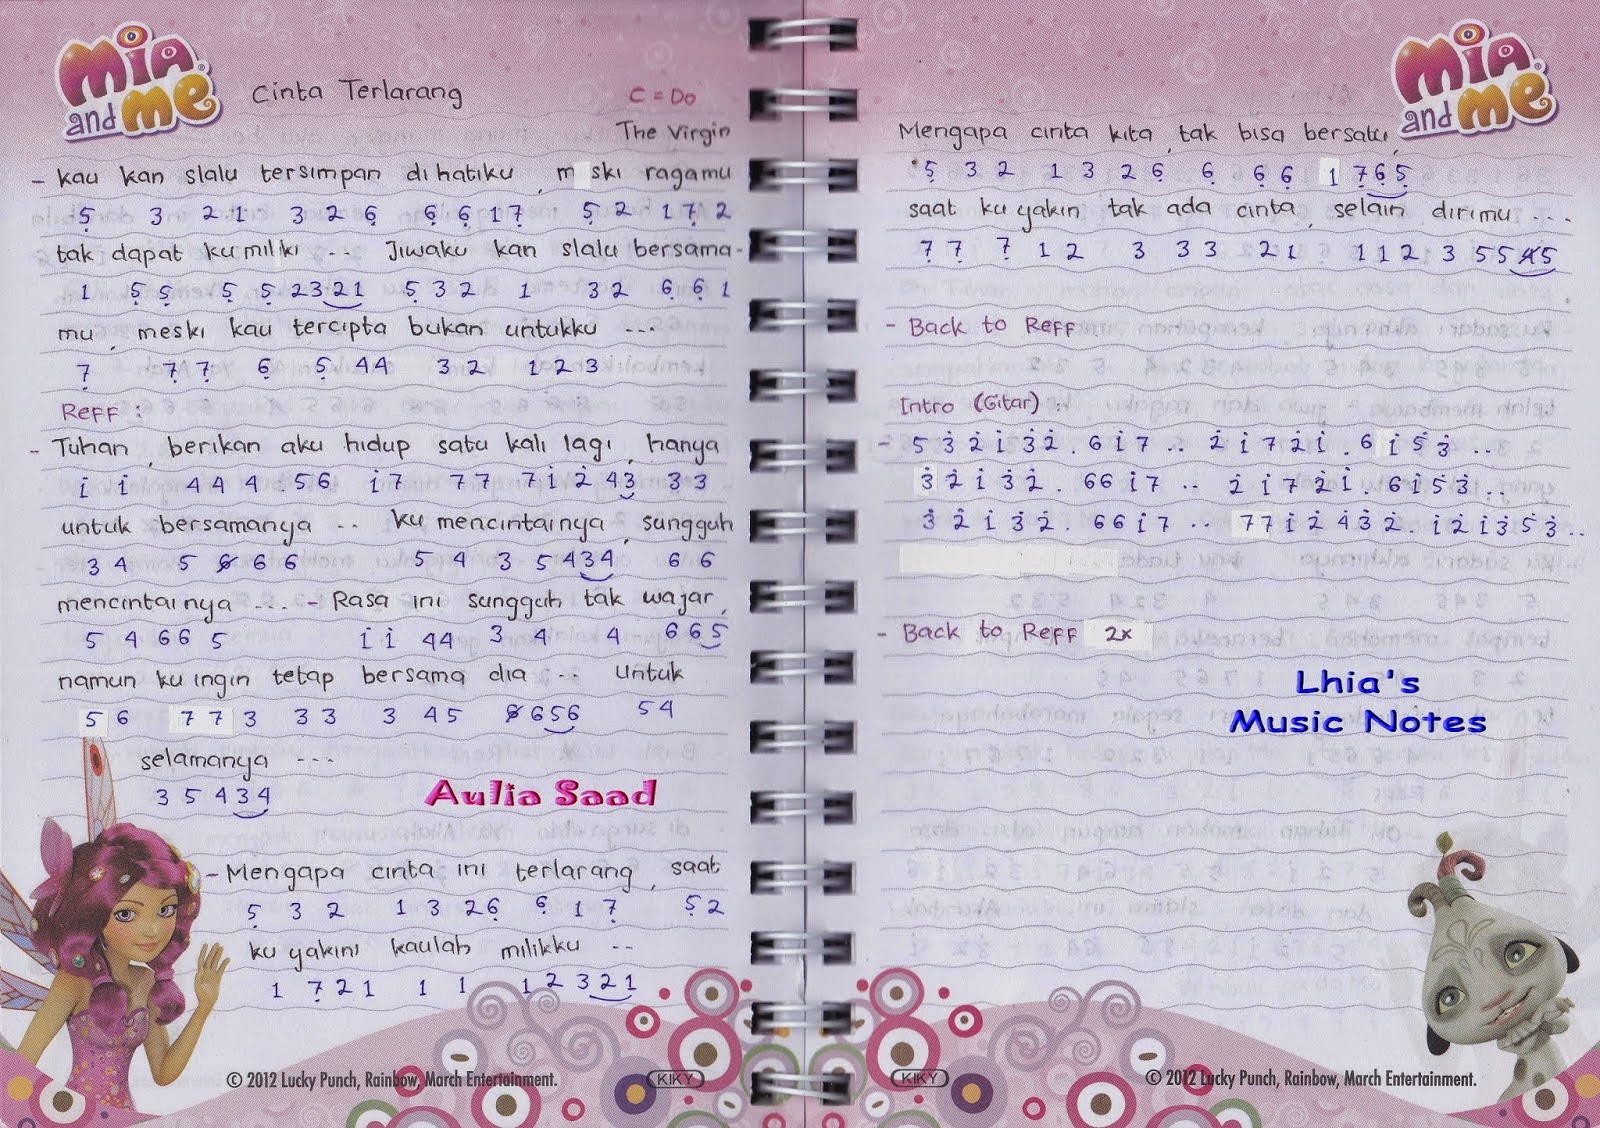 Mia and me
Cinta Terlarang C = Do
The Virgin
- kau kan slalu tersimpan di hatiku , m ski ragamu
5̣ 3 2 1 3 2 6̣ 6̣ 6̣ 1 7̣ 5̣ 2 1 7̣ 2
tak dapat ku miliki ... Jiwaku kan slalu bersama -
1 5̣ 5̣ 5̣ 5̣ 2 3 2 1 5̣ 3 2 1 3 2 6̣ 6̣ 1
mu , meski kau tercipta bukan untukku ...
7̣ 7̣ 7̣ 6̣ 5̣ 4 4 3 2 1 2 3
Reff :
- Tuhan , berikan aku hidup satu kali lagi , hanya
i i 4 4 4 . 5 6 i 7 7 7 7 i 2̇ 4 3 3 3
untuk bersamanya .. ku mencintainya , sungguh
3 4 5 6 6 6 5 4 3 5 4 3 4 6 6
mencintainya ... - Rasa ini sungguh tak wajar ,
5 4 6 6 5 i i 4 4 3 4 4 6 6 5
namun ku ingin tetap bersama dia ... untuk
5 6 7 7 3 3 3 3 4 5 6 6 5 6 5 4
selamanya ...
3 5 4 3 4
Aulia Saad
- Mengapa cinta ini terlarang , saat
5̣ 3 2 1 3 2 6̣ 6̣ 1 7̣ 5̣ 2
ku yakini kaulah milikku ..
1 7̣ 2 1 1 1 1 2 3 2 1
© 2012 Lucky Punch, Rainbow, March Entertainment.
KIKY
Mia and me
Mengapa cinta kita , tak bisa bersatu ,
5̣ 3 2 1 3 2 6̣ 6̣ 6̣ 6̣ 1 7̣ 6̣ 5̣
saat ku yakin tak ada cinta , selain dirimu ...
7̣ 7̣ 7̣ 1 2 3 3 3 2 1 1 1 2 3 5 5 4 5
- Back to Reff
Intro (Gitar) :
- 5 3̇ 2̇ i 3̇ 2̇ . 6 i 7 .. 2̇ i 7 2̇ i . 6 i 5̇ 3̇ ..
3̇ 2̇ i 3̇ 2̇ . 6 6 i 7 .. 2̇ i 7 2̇ i . 6 i 5̇ 3̇ ..
3̇ 2̇ i 3̇ 2̇ . 6 6 i 7 .. 7 7 i 2̇ 4̇ 3̇ 2̇ . i 2̇ i 3̇ 5̇ 3̇ ..
- Back to Reff 2x
Lhia's
Music Notes
KIKY
© 2012 Lucky Punch, Rainbow, March Entertainment.